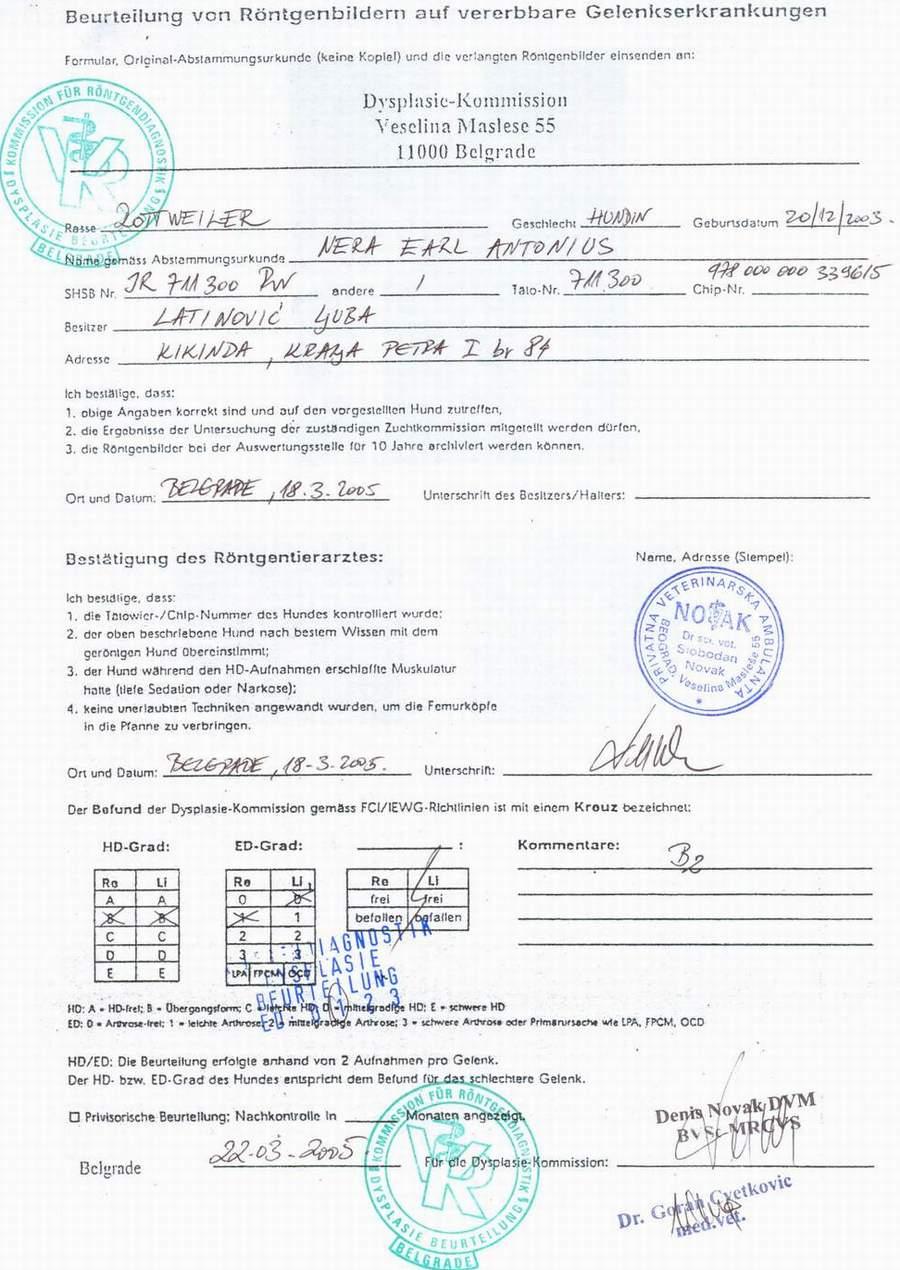 Beurteilung von Röntgenbildern auf vererbbare Gelenkserkrankungen
Formular, Original-Abstammungsurkunde (keine Kopie!) und die verlangten Röntgenbilder einsenden an:
KOMMISSION FÜR RÖNTGENDIAGNOSTIK & DYSPLASIE BEURTEILUNG
BELGRADE
Dysplasie-Kommission
Veselina Maslese 55
11000 Belgrade
Rasse ROTTWEILER Geschlecht HÜNDIN Geburtsdatum 20/12/2003.
Name gemäss Abstammungsurkunde NERA EARL ANTONIUS
SHSB Nr. JR 711300 RW andere / Täto-Nr. 711.300 Chip-Nr. 978 000 000 339615
Besitzer LATINOVIĆ LJUBA
Adresse KIKINDA, KRALJA PETRA I br 84
Ich bestätige, dass:
1. obige Angaben korrekt sind und auf den vorgestellten Hund zutreffen,
2. die Ergebnisse der Untersuchung der zuständigen Zuchtkommission mitgeteilt werden dürfen,
3. die Röntgenbilder bei der Auswertungsstelle für 10 Jahre archiviert werden können.
Ort und Datum: BELGRADE, 18.3.2005 Unterschrift des Besitzers/Halters:
Bestätigung des Röntgentierarztes: Name, Adresse (Stempel):
Ich bestätige, dass:
1. die Tätowier-/Chip-Nummer des Hundes kontrolliert wurde;
2. der oben beschriebene Hund nach bestem Wissen mit dem
geröntgen Hund übereinstimmt;
3. der Hund während den HD-Aufnahmen erschlaffte Muskulatur
hatte (tiefe Sedation oder Narkose);
4. keine unerlaubten Techniken angewandt wurden, um die Femurköpfe
in die Pfanne zu verbringen.
PRIVATNA VETERINARSKA AMBULANTA
NOVAK
Dr sci. vet.
Slobodan
Novak
BEOGRAD, Veselina Masleše 55
Ort und Datum: BELGRADE, 18-3-2005. Unterschrift:
Der Befund der Dysplasie-Kommission gemäss FCI/IEWG-Richtlinien ist mit einem Kreuz bezeichnet:
HD-Grad: ED-Grad: : Kommentare: B2
Re Li Re Li Re Li
A A 0 0 frei frei
B B 1 1 befallen befallen
C C 2 2
D D 3 3
E E LPA FPCM OCD
DIAGNOSTIK
DYSPLASIE
BEURTEILUNG
ED: 0 1 2 3
HD: A = HD-frei; B = Übergangsform; C = leichte HD; D = mittelgradige HD; E = schwere HD
ED: 0 = Arthrose-frei; 1 = leichte Arthrose; 2 = mittelgradige Arthrose; 3 = schwere Arthrose oder Primärursache wie LPA, FPCM, OCD
HD/ED: Die Beurteilung erfolgte anhand von 2 Aufnahmen pro Gelenk.
Der HD- bzw. ED-Grad des Hundes entspricht dem Befund für das schlechtere Gelenk.
Privisorische Beurteilung; Nachkontrolle in Monaten angezeigt.
Denis Novak DVM
BVSc MRCVS
Belgrade 22-03-2005. Für die Dysplasie-Kommission:
KOMMISSION FÜR RÖNTGENDIAGNOSTIK & DYSPLASIE BEURTEILUNG
BELGRADE
Dr. Goran Cvetkovic
med.vet.